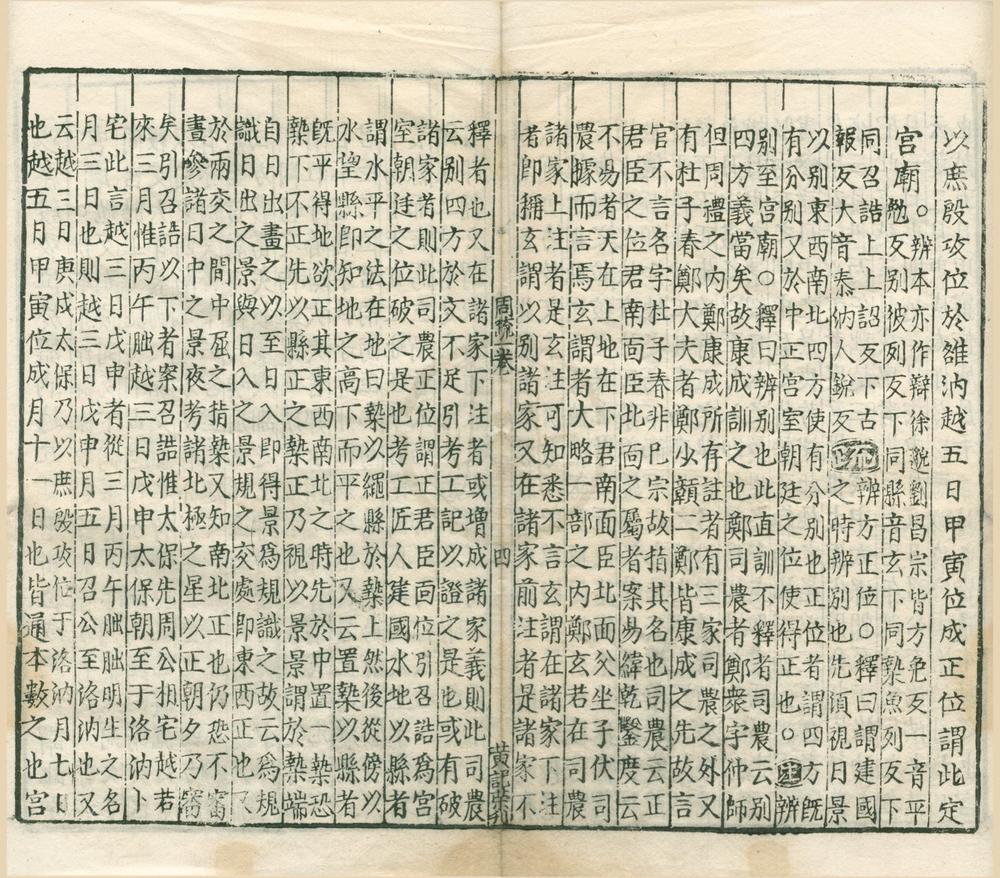 以庶殷攻位於雒汭越五日甲寅位成正位謂此定
宫廟○辨本亦作辯徐邈劉昌宗皆方免反一音平
勉反别彼列反下同縣音玄下同槷魚列反下
同召誥上上詔反下古辨方正位○釋曰謂建國
報反大音泰汭人銳反疏之時辨别也先須視日景
以别東西南北四方使有分别也正位者謂四方旣
有分别又於中正宫室朝廷之位使得正也○注辨
别至宫廟○釋曰辨别也此直訓不釋者司農云别
四方義當矣故康成訓之也鄭司農者鄭衆字仲師
但周禮之内鄭康成所存註者有三家司農之外又
有杜子春鄭大夫者鄭少贛二鄭皆康成之先故言
官不言名字杜子春非己宗故指其名也司農云正
君臣之位君南面臣北面之屬者案易緯乾鑿度云
不易者天在上地在下君南面臣北面父坐子伏司
農據而言焉玄謂者大略一部之内鄭玄若在司農
諸家上注者是玄注可知悉不言玄謂在諸家下注
者即稱玄謂以别諸家又在諸家前注者是諸家不
周疏一卷
四
釋者也又在諸家下注者或增成諸家義則此司農
云别四方於文不足引考工記以證之是也或有破
諸家者則此司農正位謂正君臣面位引召誥爲宫
室朝廷之位破之是也考工匠人建國水地以縣者
謂水平之法在地曰槷以繩縣於槷上然後從傍以
水望縣即知地之高下而平之也又云置槷以縣者
旣平得地欲正其東西南北之時先於中置一槷恐
槷下不正先以縣正之槷正乃視以景景謂於槷端
自日出畫之以至日入即得景爲規識之故云爲規
識日出之景與日入之景規之交處即東西正也又
於兩交之間中屈之指槷又知南北正也仍恐不審
畫參諸日中之景夜考諸北極之星以正朝夕乃審
矣引召誥以下者案召誥惟太保先周公相宅越若
來三月惟丙午朏越三日戊申太保朝至于洛汭卜
宅此言越三日戊申者從三月丙午朏朏明生之名
月三日也則越三日戊申月五日召公至洛汭也又
云越三日庚戌太保乃以庶殷攻位于洛汭月七日
也越五月甲寅位成月十一日也皆通本數之也宫